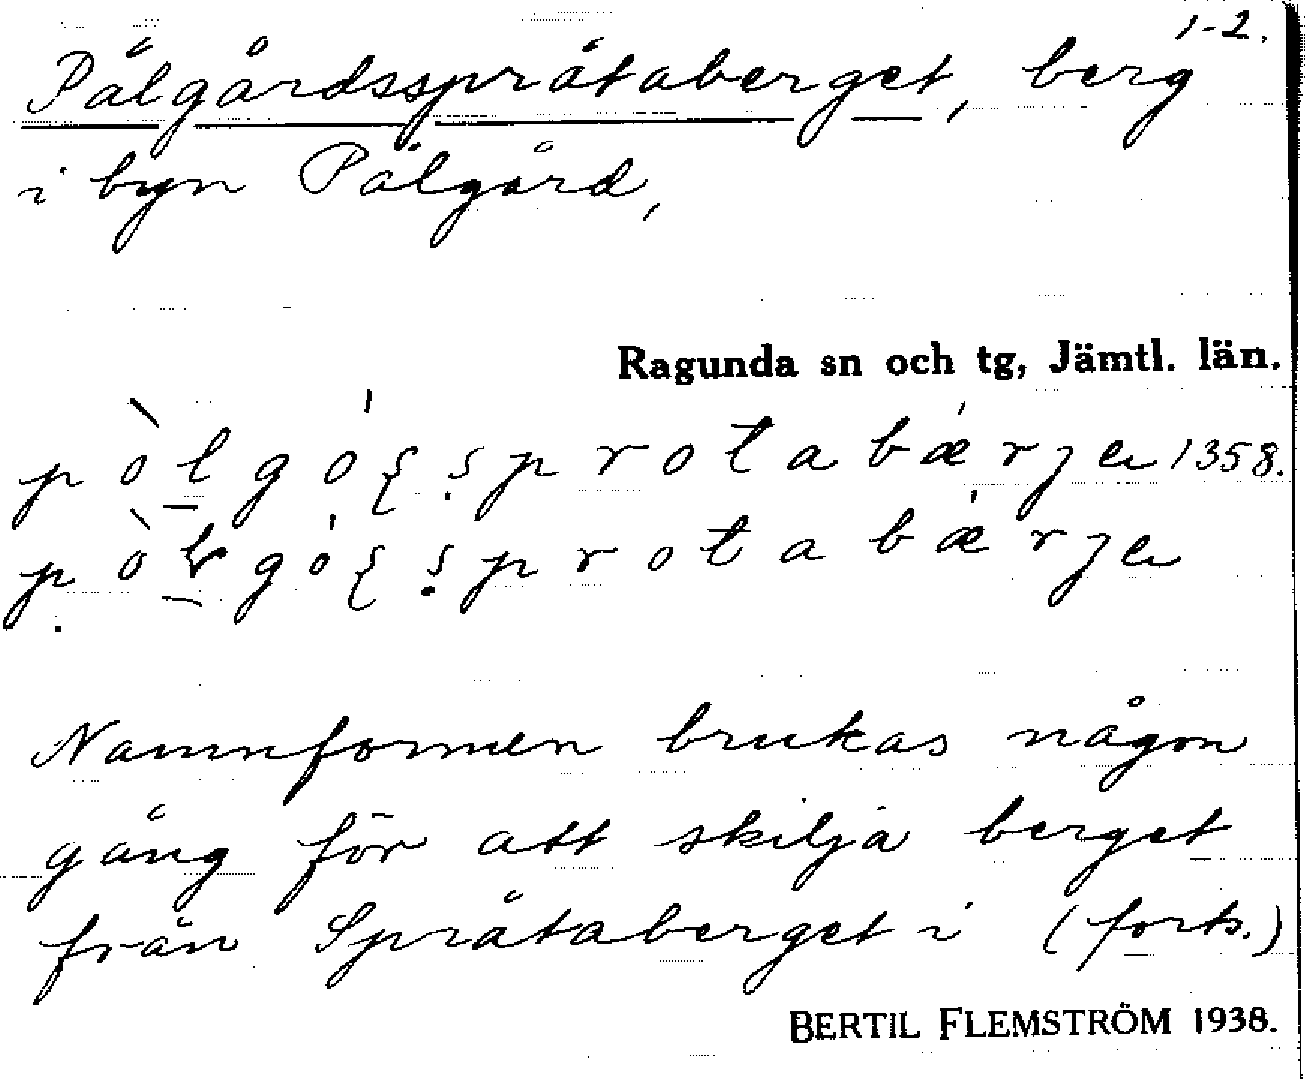 1-2.
Pålgårdsspråtaberget, berg
i byn Pålgård,
Ragunda sn och tg, Jämtl. län.
1358.
Namnformen brukas någon
gång för att skilja berget
från Språtaberget i (forts.)
BERTIL FLEMSTRÖM 1938.